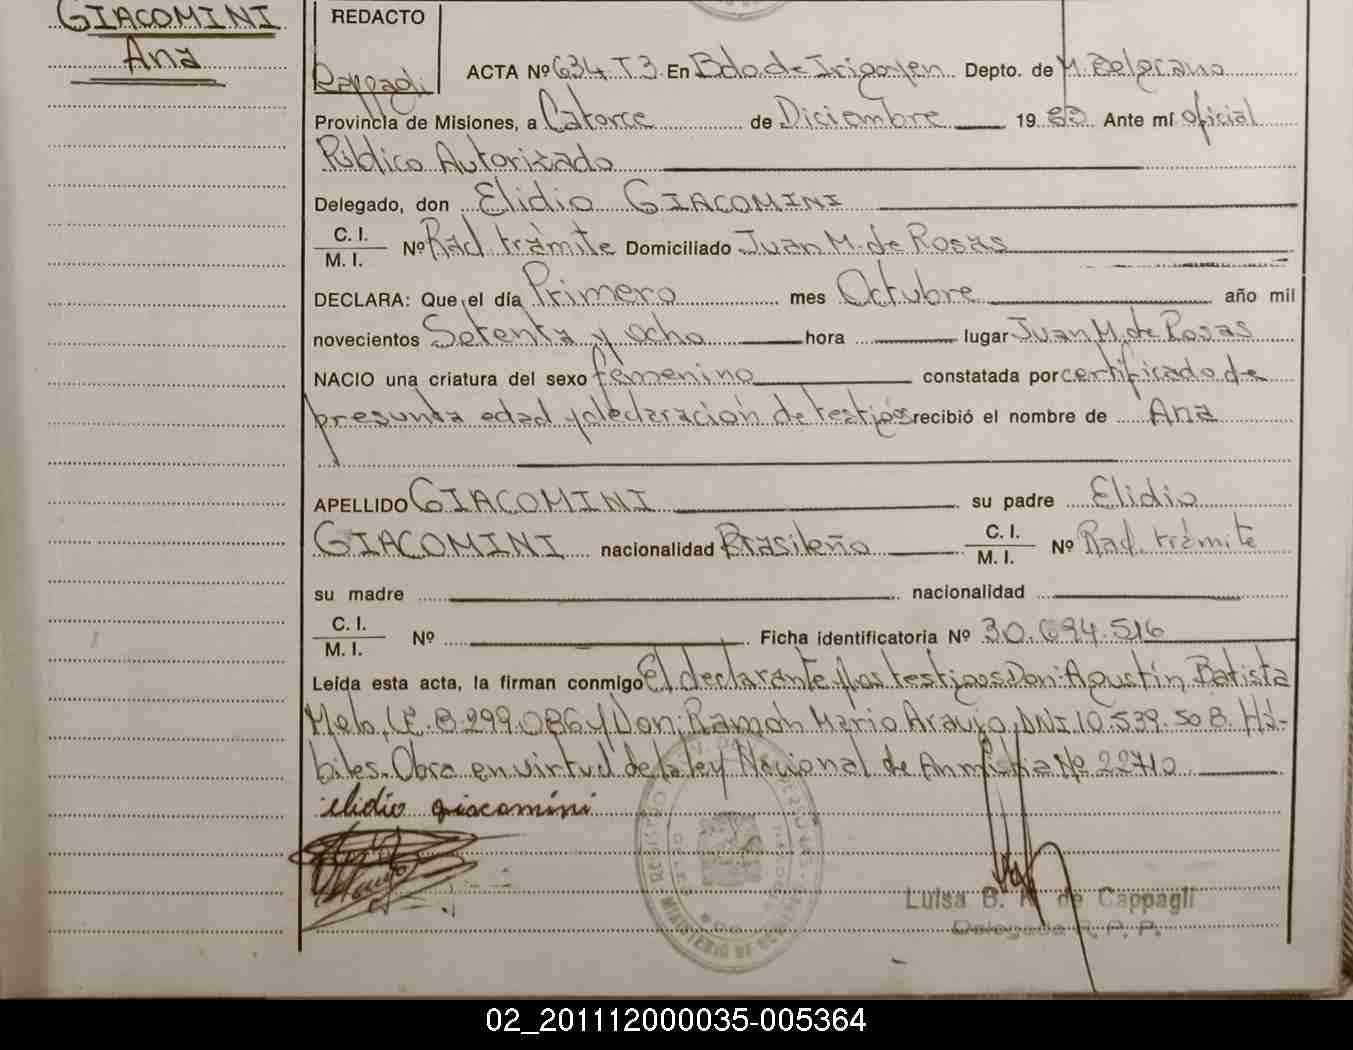 GIACOMINI
Ana
REDACTO
Cappagli
ACTA Nº 634 T3 En Bdo. de Irigoyen Depto. de M. Belgrano
Provincia de Misiones, a Catorce de Diciembre 19 82 Ante mí oficial
Público Autorizado
Delegado, don Elidio GIACOMINI
C. I.
M. I. Nº Rad. trámite Domiciliado Juan M. de Rosas
DECLARA: Que el día Primero mes Octubre año mil
novecientos Setenta y ocho hora lugar Juan M. de Rosas
NACIO una criatura del sexo femenino constatada por certificado de
presunta edad y declaración de testigos recibió el nombre de Ana
APELLIDO GIACOMINI su padre Elidio
GIACOMINI nacionalidad Brasileño C. I.
M. I. Nº Rad. trámite
su madre nacionalidad
C. I.
M. I. Nº Ficha identificatoria Nº 30.694.516
Leída esta acta, la firman conmigo El declarante y los testigos Don: Agustín Batista
Melo, L.E. 8.299.086 y Don: Ramón Mario Araujo, DNI 10.539.508. Há-
biles. Obra en virtud de la ley Nacional de Amnistía Nº 22710
elidio giacomini
Luisa B. de Cappagli
Delegada R. P. P.
02_201112000035-005364